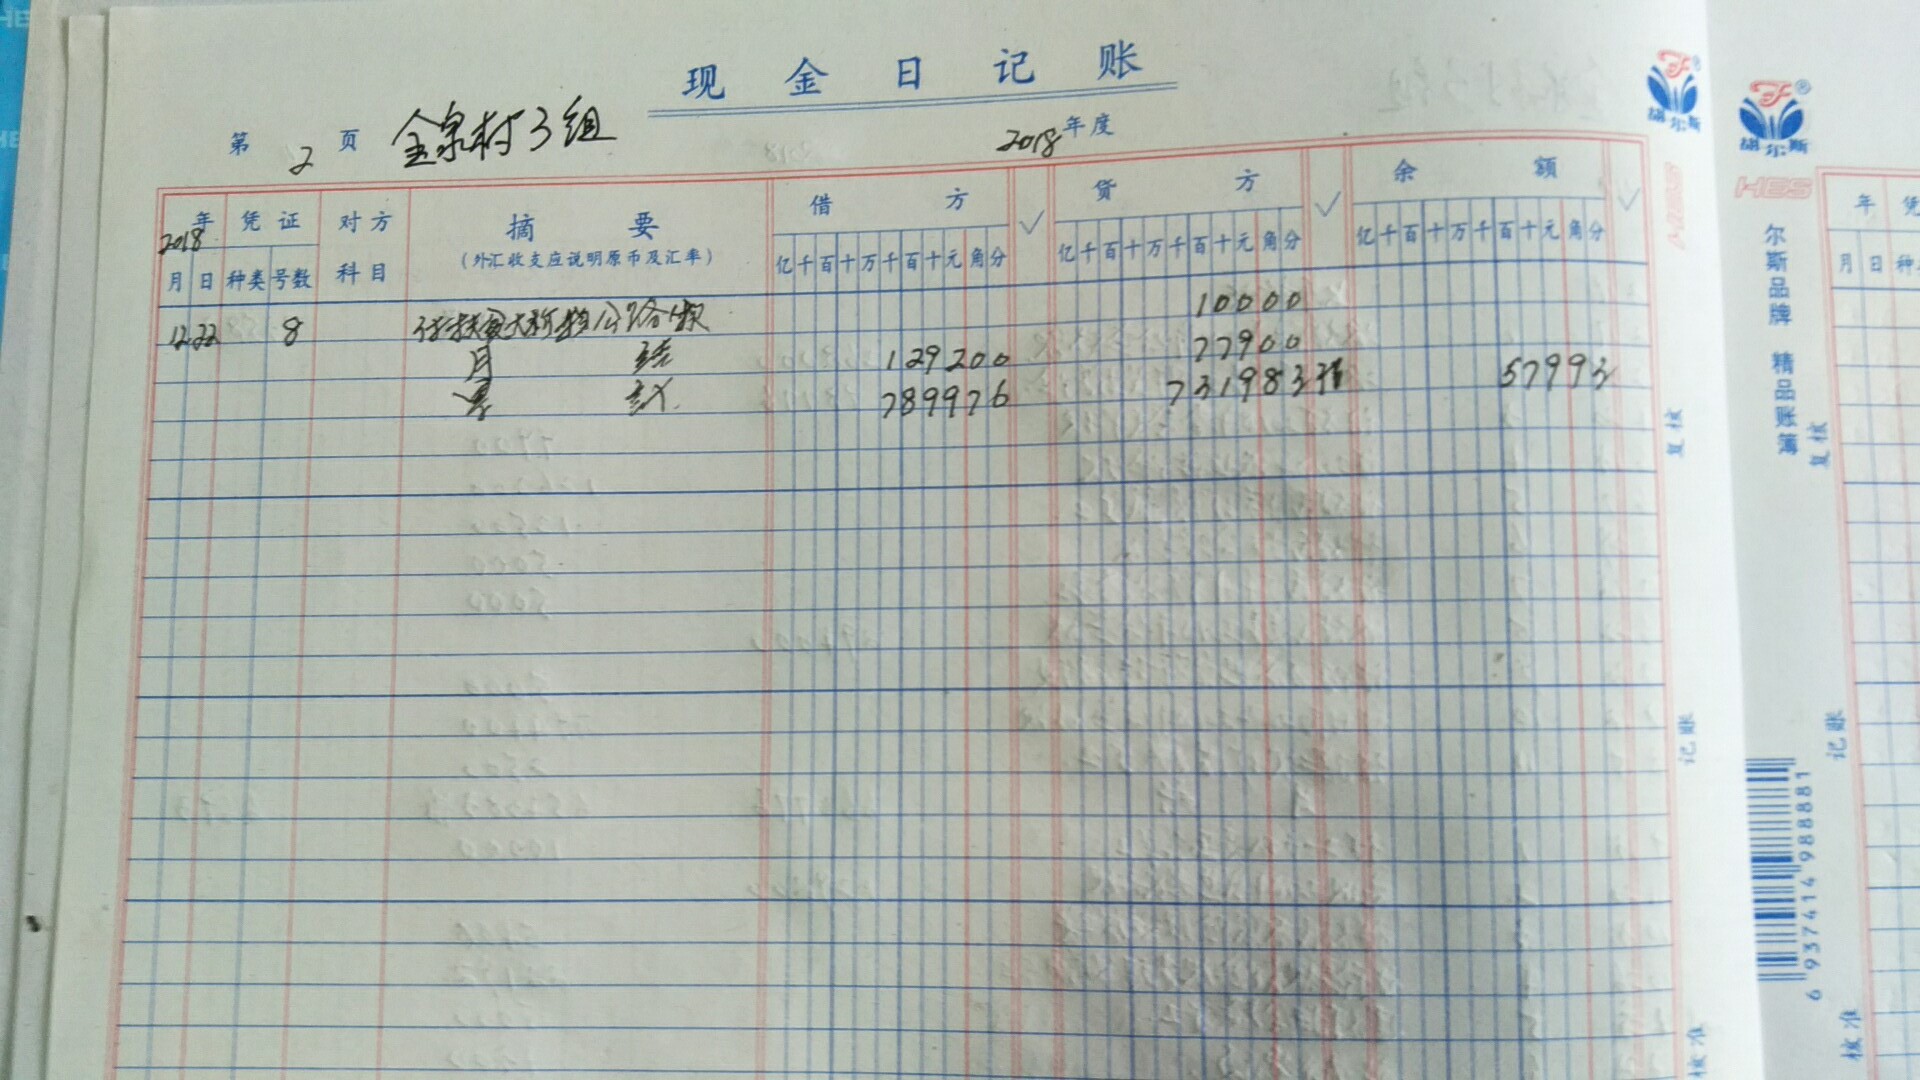 现金日记账
第 2 页 金泉村3组 2018年度
2018年 凭证 对方科目 摘要 借方 ✓ 贷方 ✓ 余额 ✓
(外汇收支应说明原币及汇率)
月 日 种类 号数 亿千百十万千百十元角分 亿千百十万千百十元角分 亿千百十万千百十元角分
12 22 8 10000
月 结 129200 77900
累 计 789976 731983 57993
复核
记账
核准
胡尔斯
HBS
尔斯品牌 精品账簿
6 937414 988881
胡尔斯
HBS
年 凭
月 日 种
复核
记账
核准